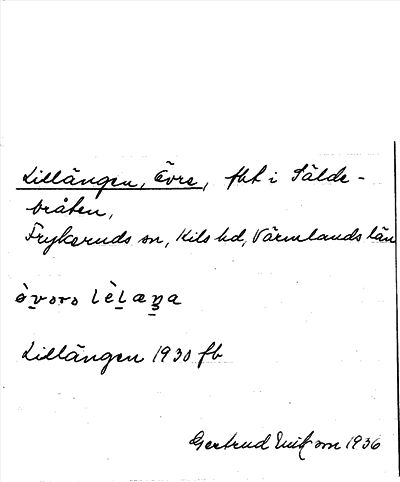 Lillängen, Övre, fht i Sälde-
bråten,
Frykeruds sn, Kils hd, Värmlands län
Lillängen 1930 fb
Gertrud Eriksson 1936